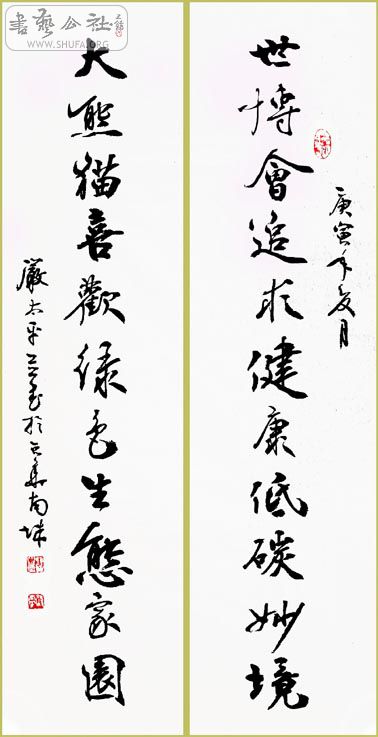 書藝公社
WWW.SHUFA.ORG
庚寅年夏月
世博會追求健康低碳妙境
大熊猫喜歡绿色生態家園
嚴太平